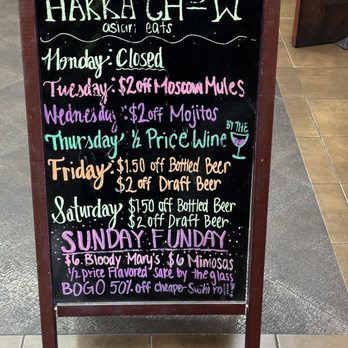 HAKKA CHOW
asian eats
Monday: Closed
Tuesday: $2 off Moscow Mules
Wednesday: $2 off Mojitos
Thursday: 1/2 Price Wine BY THE
Friday: $1.50 off Bottled Beer
$2 off Draft Beer
Saturday: $1.50 off Bottled Beer
$2 off Draft Beer
SUNDAY FUNDAY
$6 Bloody Mary's $6 Mimosas
1/2 price Flavored sake by the glass
BOGO 50% off cheaper sushi roll!